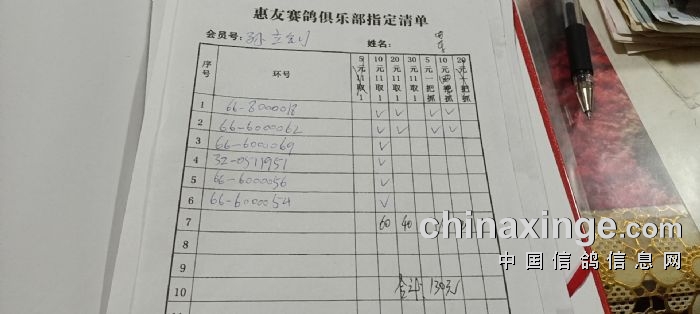 惠友赛鸽俱乐部指定清单
会员号: 孙立剑 姓名:
序号 环号 5元11取1 10元11取1 20元11取1 30元11取1 5元一把抓 10元一把抓 20元一把抓
1 66-8000018 ✓ ✓ ✓ ✓
2 66-6000062 ✓ ✓ ✓ ✓
3 66-6000069 ✓
4 32-0511951 ✓
5 66-6000056 ✓
6 66-6000054 ✓
7 60 40
8
9
10 合计 130元
chinaxinge.com
中国信鸽信息网